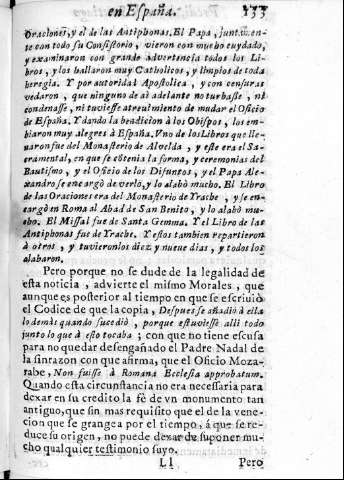 en España. 133
Oraciones, y el de las Antiphonas. El Papa, juntamen-
te con todo su Consistorio, vieron con mucho cuydado,
y examinaron con grande advertencia todos los Li-
bros, y los hallaron muy Catholicos, y limpios de toda
heregia. Y por autoridad Apostolica, y con censuras
vedaron, que ninguno de ai adelante no turbasse, ni
condenasse, ni tuviesse atrevimiento de mudar el Oficio
de España. Y dando la bendicion à los Obispos, los em-
biaron muy alegres à España. Uno de los Libros que lle-
varon fue del Monasterio de Alvelda, y este era el Sa-
cramental, en que se cõtenia la forma, y ceremonias del
Bautismo, y el Oficio de los Difuntos, y el Papa Ale-
xandro se encargò de verlo, y lo alabò mucho. El Libro
de las Oraciones era del Monasterio de Yrache, y se en-
cargò en Roma al Abad de San Benito, y lo alabò mu-
cho. El Missal fue de Santa Gemma. Y el Libro de las
Antiphonas fue de Yrache. Y estos tambien repartieron
à otros, y tuvieronlos diez y nueve dias, y todos los
alabaron.
Pero porque no se dude de la legalidad de
esta noticia, advierte el mismo Morales, que
aunque es posterior al tiempo en que se escriviò
el Codice de que la copia, Despues se añadiò à ella
lo demàs quando sucediò, porque estuviesse alli todo
junto lo que à esto tocaba; con que no tiene escusa
para no quedar desengañado el Padre Nadal de
la sinrazon con que afirma, que el Oficio Moza-
rabe, Non fuisse à Romana Ecclesia approbatum.
Quando esta circunstancia no era necessaria para
dexar en su credito la fè de vn monumento tan
antiguo, que sin mas requisito que el de la vene-
cion que se grangea por el tiempo, á que se re-
duce su origen, no puede dexar de suponer mu-
cho qualquier testimonio suyo.
Ll Pero